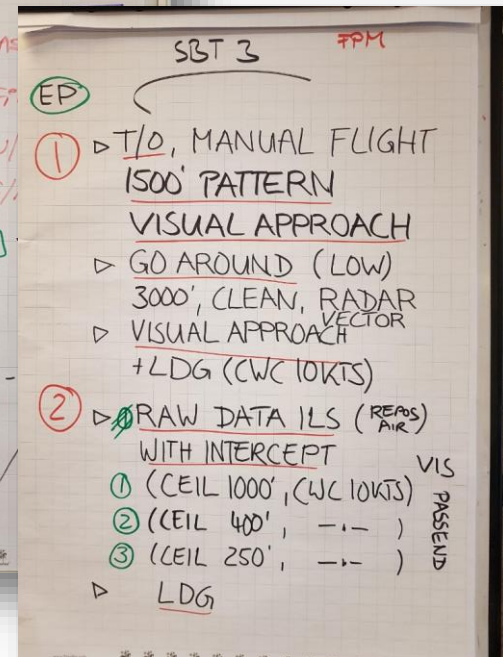 SBT 3 FPM
EP
① ▷ T/O, MANUAL FLIGHT
1500' PATTERN
VISUAL APPROACH
▷ GO AROUND (LOW)
3000', CLEAN, RADAR
VECTOR
▷ VISUAL APPROACH
+LDG (CWC 10KTS)
② ▷ RAW DATA ILS (REPOS AIR)
WITH INTERCEPT
① (CEIL 1000', CWC 10KTS)
② (CEIL 400', —·— )
③ (CEIL 250', —·— )
VIS PASSEND
▷ LDG